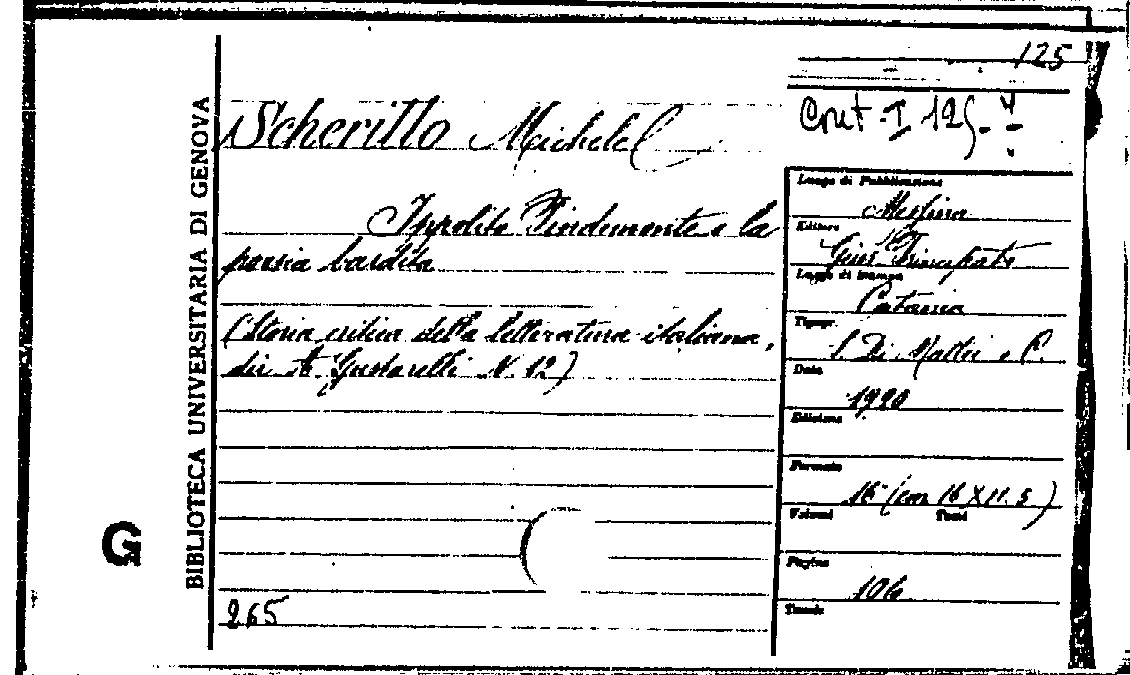 125
Cont-I 125.4
Scherillo Michele
Ippolito Pindemonte e la
poesia bardita
(Storia critica della letteratura italiana,
dir. A. Gustarelli N. 12)
265
BIBLIOTECA UNIVERSITARIA DI GENOVA
G
Luogo di Pubblicazione
Messina
Editore
Gius. Principato
Luogo di stampa
Catania
Tipogr.
S. Di Mattei e C.
Data
1920
Edizione
Formato
16° (cm 16 X 11.5)
Volumi Tomi
Pagine
106
Tavole